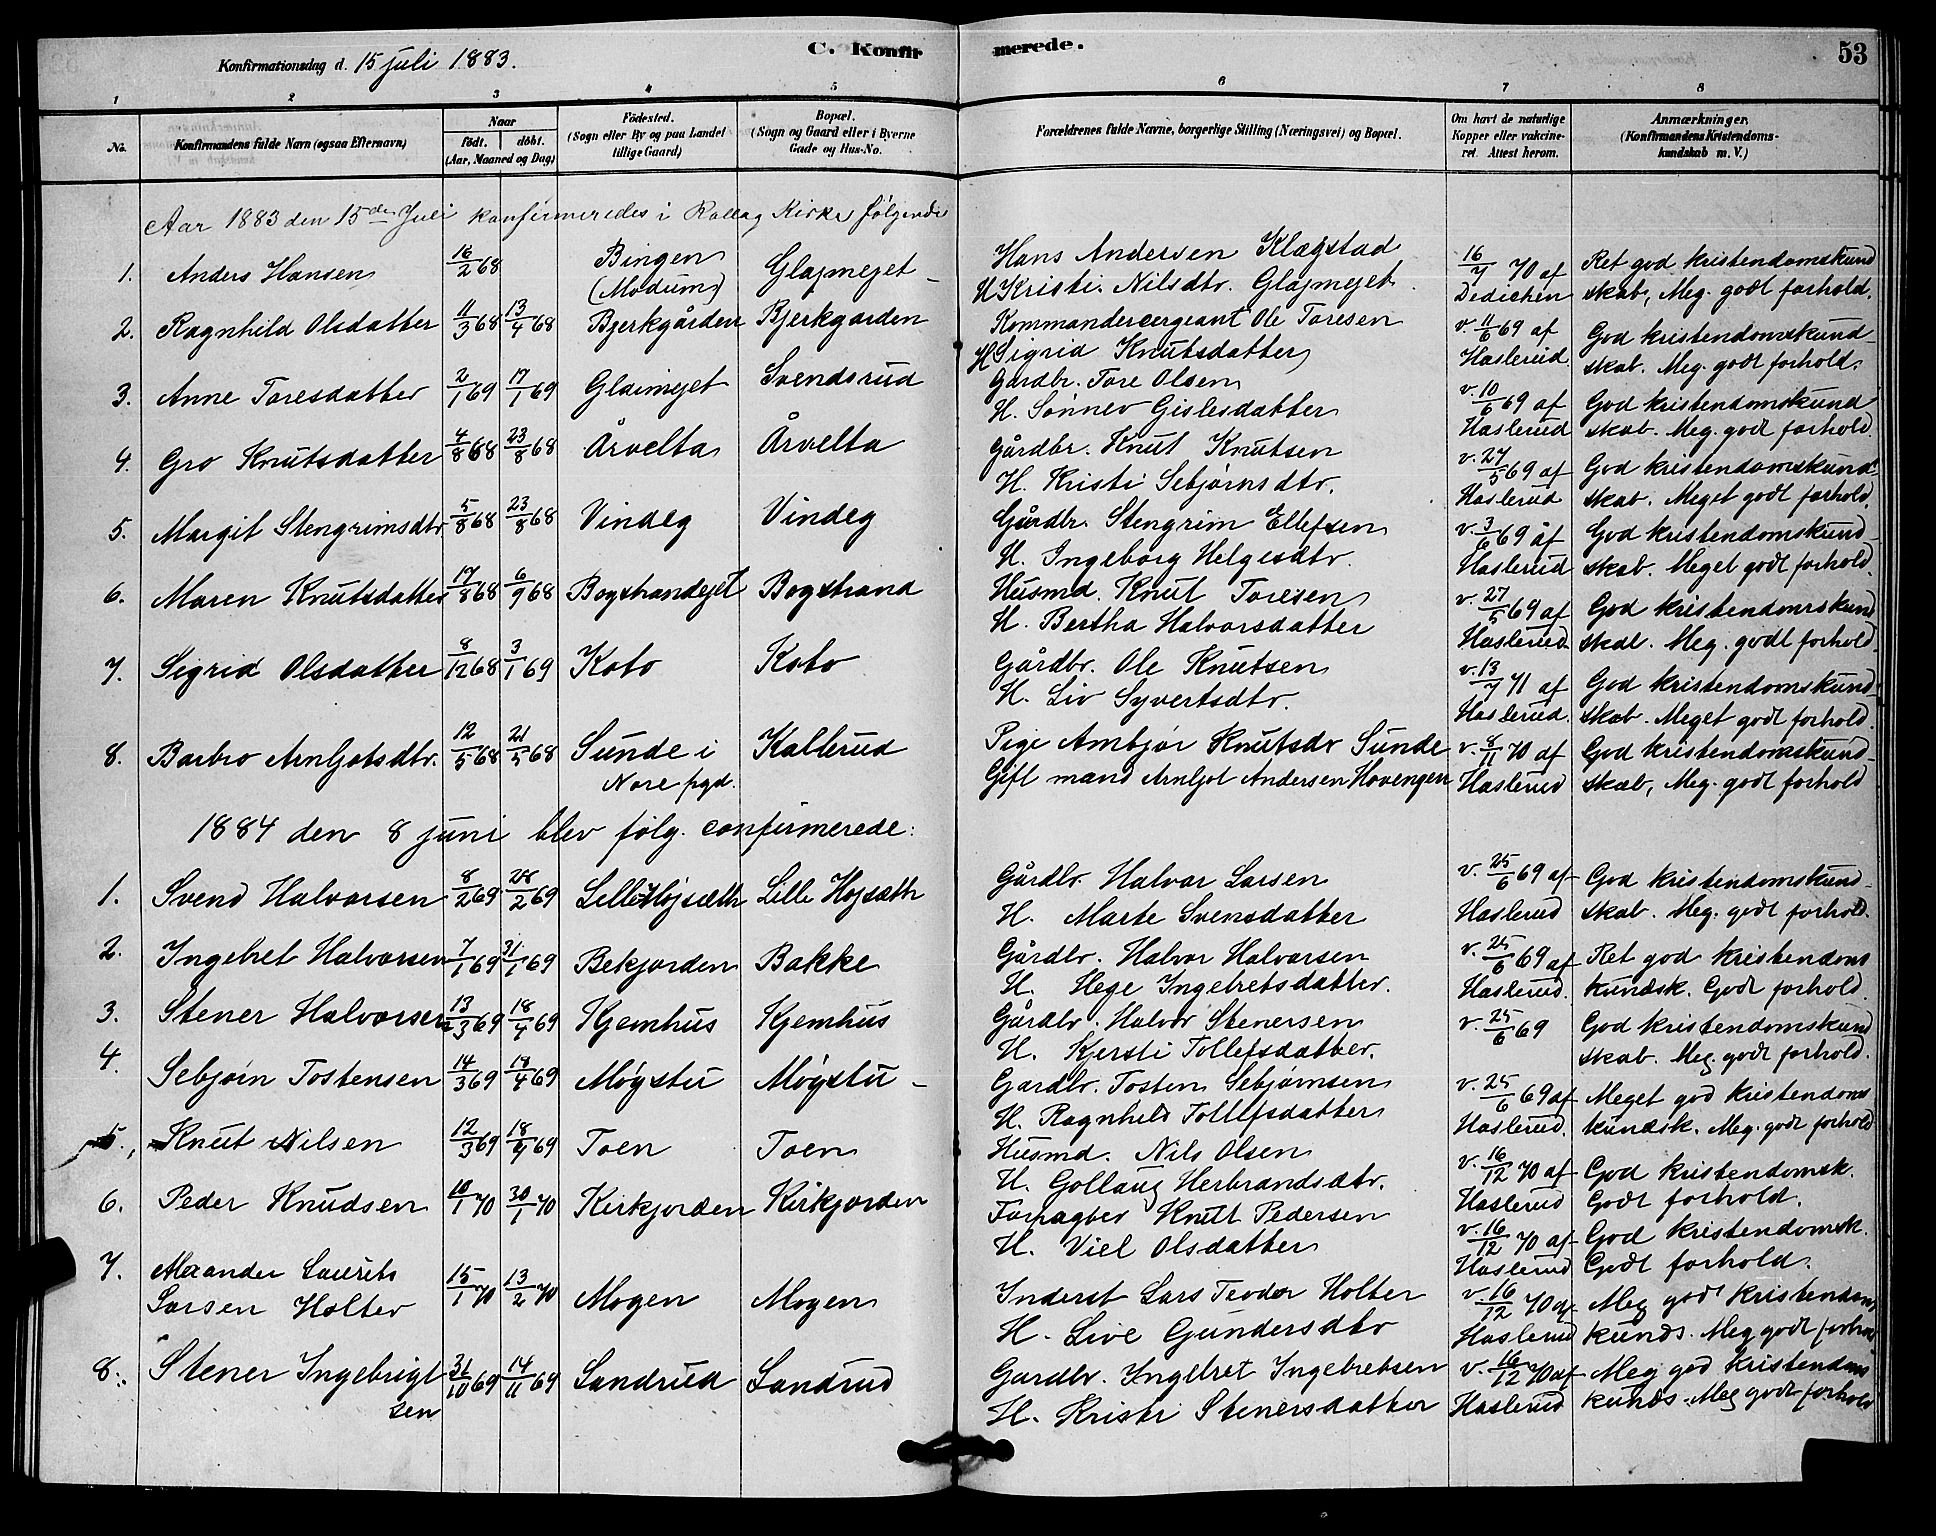 Konfirmationsdag d. 15 juli 1883.
C. Konfirmerede.
53
1 2 3 4 5 6 7 8
No. Konfirmandens fulde Navn (ogsaa Efternavn) Naar födt. döbt. (Aar, Maaned og Dag)
Födested. (Sogn eller By og paa Landet tillige Gaard)
Bopæl. (Sogn og Gaard eller i Byerne Gade og Hus-No.
Forældrenes fulde Navne, borgerlige Stilling (Næringsvei) og Bopæl.
Om havt de naturlige Kopper eller vakcineret. Attest herom.
Anmærkninger. (Konfirmandens Kristendomskundskab m. V.)
Aar 1883 den 15de Juli konfirmeredes i Rollag Kirke følgende
1. Anders Hansen 16/2 68 Bingen (Modum) Glajmejet Hans Andersen Klægstad 16/7 70 af Ret god kristendomskund
Kristi Nilsdtr. Glajmejet Dedichen skab, Meg. godt forhold.
2. Ragnhild Olsdatter 11/3 68 13/4 68 Bjerkgården Bjerkgården Kommandersergeant Ole Toresen v. 11/6 69 af God kristendomskund
H Sigrid Knutsdatter Haslerud skab. Meg. godt forhold.
3. Anne Toresdatter 2/1 69 17/1 69 Glaimejet Svendsrud Gårdbr. Tore Olsen v. 10/6 69 af God kristendomskund
H. Sønnev Gislesdatter Haslerud skab. Meg. godt forhold.
4. Gro Knutsdatter 4/8 68 23/8 68 Årvelta Årvelta Gårdbr. Knut Knutsen v. 27/5 69 af God kristendomskund
H. Kristi Sebjørnsdtr. Haslerud skab. Meget godt forhold.
5. Margit Stengrimsdtr 5/8 68 23/8 68 Vindeg Vindeg Gårdbr. Stengrim Ellefsen v. 3/6 69 af God kristendomskund
H. Ingeborg Helgesdtr. Haslerud skab. Meget godt forhold.
6. Maren Knutsdatter 17/8 68 6/9 68 Bogstrandejet Bogstrand Husmd. Knut Toresen v. 27/5 69 af God kristendomskund
H. Bertha Halvorsdatter Haslerud skab. Meg. godt forhold
7. Sigrid Olsdatter 8/12 68 3/1 69 Koto Koto Gårdbr. Ole Knutsen v. 13/7 71 af God kristendomskund
H. Liv Syvertsdtr. Haslerud. skab. Meget godt forhold.
8. Barbro Arnljotsdtr. 12/5 68 21/5 68 Sunde i Nore pgd. Kallerud Pige Ambjør Knutsdr Sunde v. 8/11 70 af God kristendomskund
Gift mand Arnljot Andersen Hovengen Haslerud skab, Meg. godt forhold
1884 den 8 juni blev følg. confirmerede:
1. Svend Halvorsen 8/2 69 28/2 69 Lille Højsæth Lille Højsæth Gårdbr. Halvor Larsen v. 25/6 69 af God kristendomskund
H. Marte Svensdatter Haslerud skab. Meg. godt forhold.
2. Ingebret Halvorsen 7/1 69 31/1 69 Bekjorden Bakke Gårdbr. Halvor Halvorsen v. 25/6 69 af Ret god kristendoms
H. Hege Ingebretsdatter. Haslerud. kundsk. Godt forhold.
3. Stener Halvorsen 13/3 69 18/4 69 Kjemhus Kjemhus Gårdbr. Halvor Stenersen v. 25/6 69 God kristendomskund
H. Kjersti Tollefsdatter. skab. Meg godt forhold.
4. Sebjørn Tostensen 14/3 69 18/4 69 Møgstu Møgstu Gardbr. Tosten Sebjørnsen v. 25/6 69 af Meget god kristendoms
H. Ragnhild Tollefsdatter Haslerud. kundsk. Meg. godt forhold
5. Knut Nilsen 12/3 69 18/4 69 Toen Toen Husmd. Nils Olsen v. 16/12 70 af God kristendomsk.
H. Gollaug Herbrandsdtr. Haslerud Godt forhold.
6. Peder Knudsen 10/1 70 30/1 70 Kirkjorden Kirkjorden Forpagter Knut Pedersen v. 16/12 70 af God kristendomsk.
H. Viel Olsdatter Haslerud Godt forhold.
7. Alexander Laurits Larsen Holter 15/1 70 13/2 70 Mogen Mogen Inderst Lars Teodor Holter v. 16/12 70 af Meg god kristendoms
H. Live Gundersdtr Haslerud kunds. Meg godt forhold
8. Stener Ingebrigtsen 31/10 69 14/11 69 Landrud Landrud Gardbr. Ingebret Ingebretsen v. 16/12 70 af Meg god kristendoms
H. Kristi Stenersdatter Haslerud kunds. Meg godt forhold